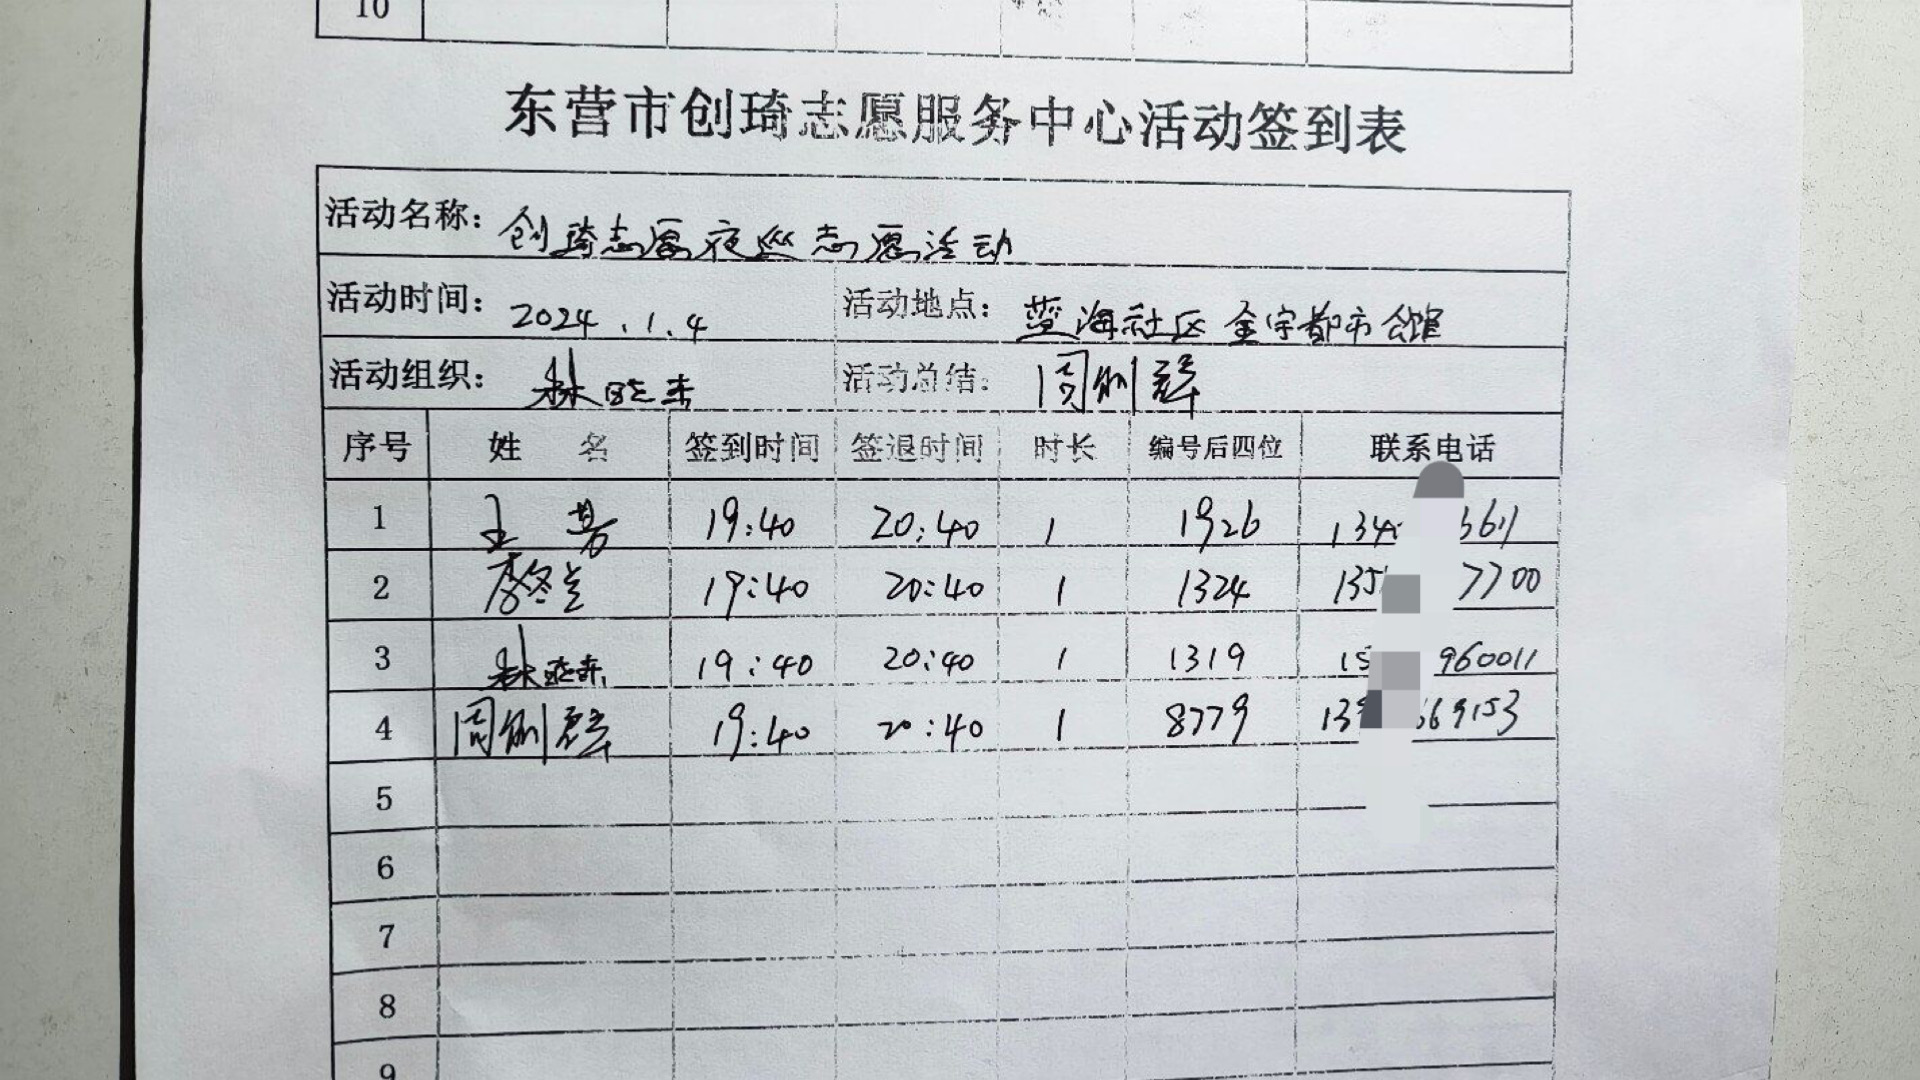 10
东营市创琦志愿服务中心活动签到表
活动名称： 创琦志愿夜巡志愿活动
活动时间： 2024.1.4 活动地点： 蓝海社区 金宇都市公馆
活动组织： 林晓杰 活动总结： 周俐群
序号 姓 名 签到时间 签退时间 时长 编号后四位 联系电话
1 王 芳 19:40 20:40 1 1926 134 3611
2 19:40 20:40 1 1324 135 7700
3 林晓杰 19:40 20:40 1 1319 15 960011
4 周俐群 19:40 20:40 1 8779 13 669153
5
6
7
8
9